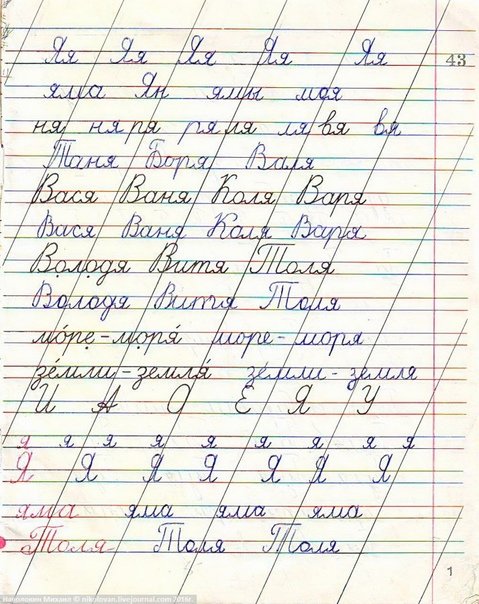 Яя Яя Яя Яя Яя
43
яма Ян ямы моя
ня ня ря ря ля ля вя вя
Таня Боря Валя
Вася Ваня Коля Варя
Вася Ваня Коля Варя
Володя Витя Толя
Володя Витя Толя
мо́ре-моря́ море-моря
зе́мли-земля́ зе́мли-земля
И А О Е Я У
я я я я я я я я я
Я Я Я Я Я Я Я
яма яма яма яма
Толя Толя Толя
1
Наполовин Михаил © nikolovan.livejournal.com 2016г.